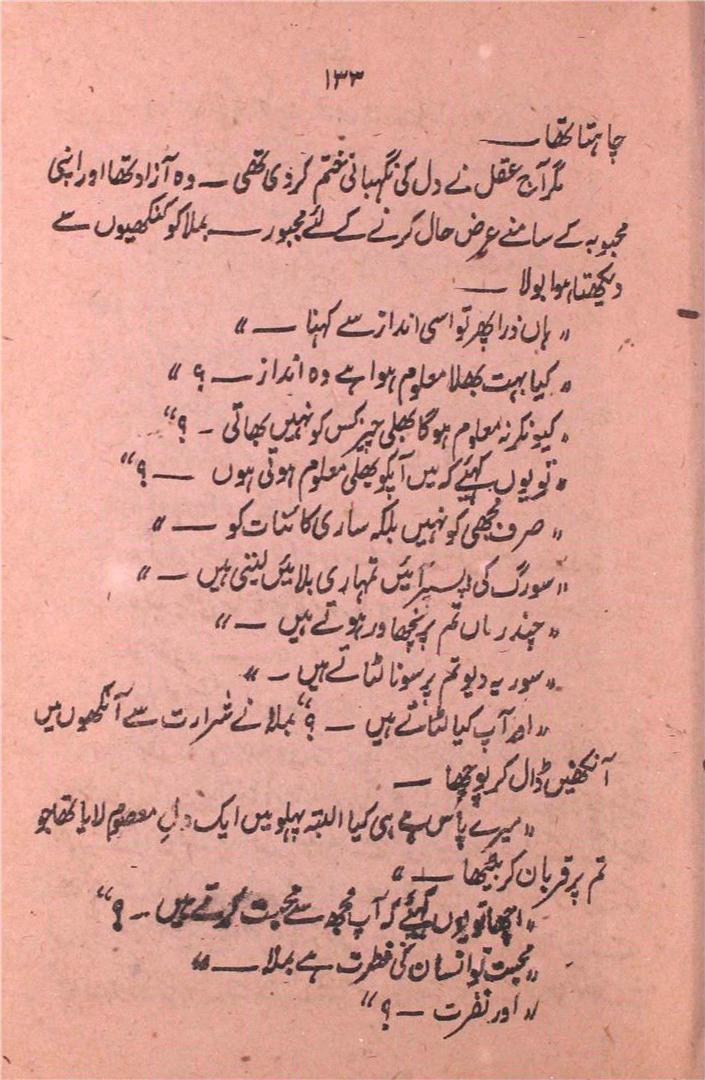 ۱۳۳
چاہتا تھا ـــ
مگر آج عقل نے دل کی نگہبانی ختم کر دی تھی ـــ وہ آزاد تھا اور اپنی
محبوبہ کے سامنے عرض حال کرنے کے لئے مجبور ـــ بملا کو کنکھیوں سے
دیکھتا ہوا بولا ـــ
"ہاں ذرا پھر تو اسی انداز سے کہنا ـــ"
"کیا بہت بھلا معلوم ہوا ہے وہ انداز ـــ ؟"
"کیونکر نہ معلوم ہوگا بھلی چیز کس کو نہیں بھاتی ـ ؟"
"تو یوں کہئے کہ میں آپکو بھلی معلوم ہوتی ہوں ـــ ؟"
"صرف مجھی کو نہیں بلکہ ساری کائنات کو ـــ"
"سورگ کی اپسرائیں تمہاری بلائیں لیتی ہیں ـــ"
"چندرماں تم پر نچھاور ہوتے ہیں ـــ"
"سوریہ دیو تم پر سونا لٹاتے ہیں ـ"
"اور آپ کیا لٹاتے ہیں ـــ ؟" بملا نے شرارت سے آنکھوں میں
آنکھیں ڈال کر پوچھا ـــ
"میرے پاس ہے ہی کیا البتہ پہلو میں ایک دلِ معصوم لایا تھا جو
تم پر قربان کر بیٹھا ـــ"
"اچھا تو یوں کہئے کہ آپ مجھ سے محبت کرتے ہیں ـ ؟"
"محبت تو انسان کی فطرت ہے بملا ـــ"
"اور نفرت ـــ ؟"